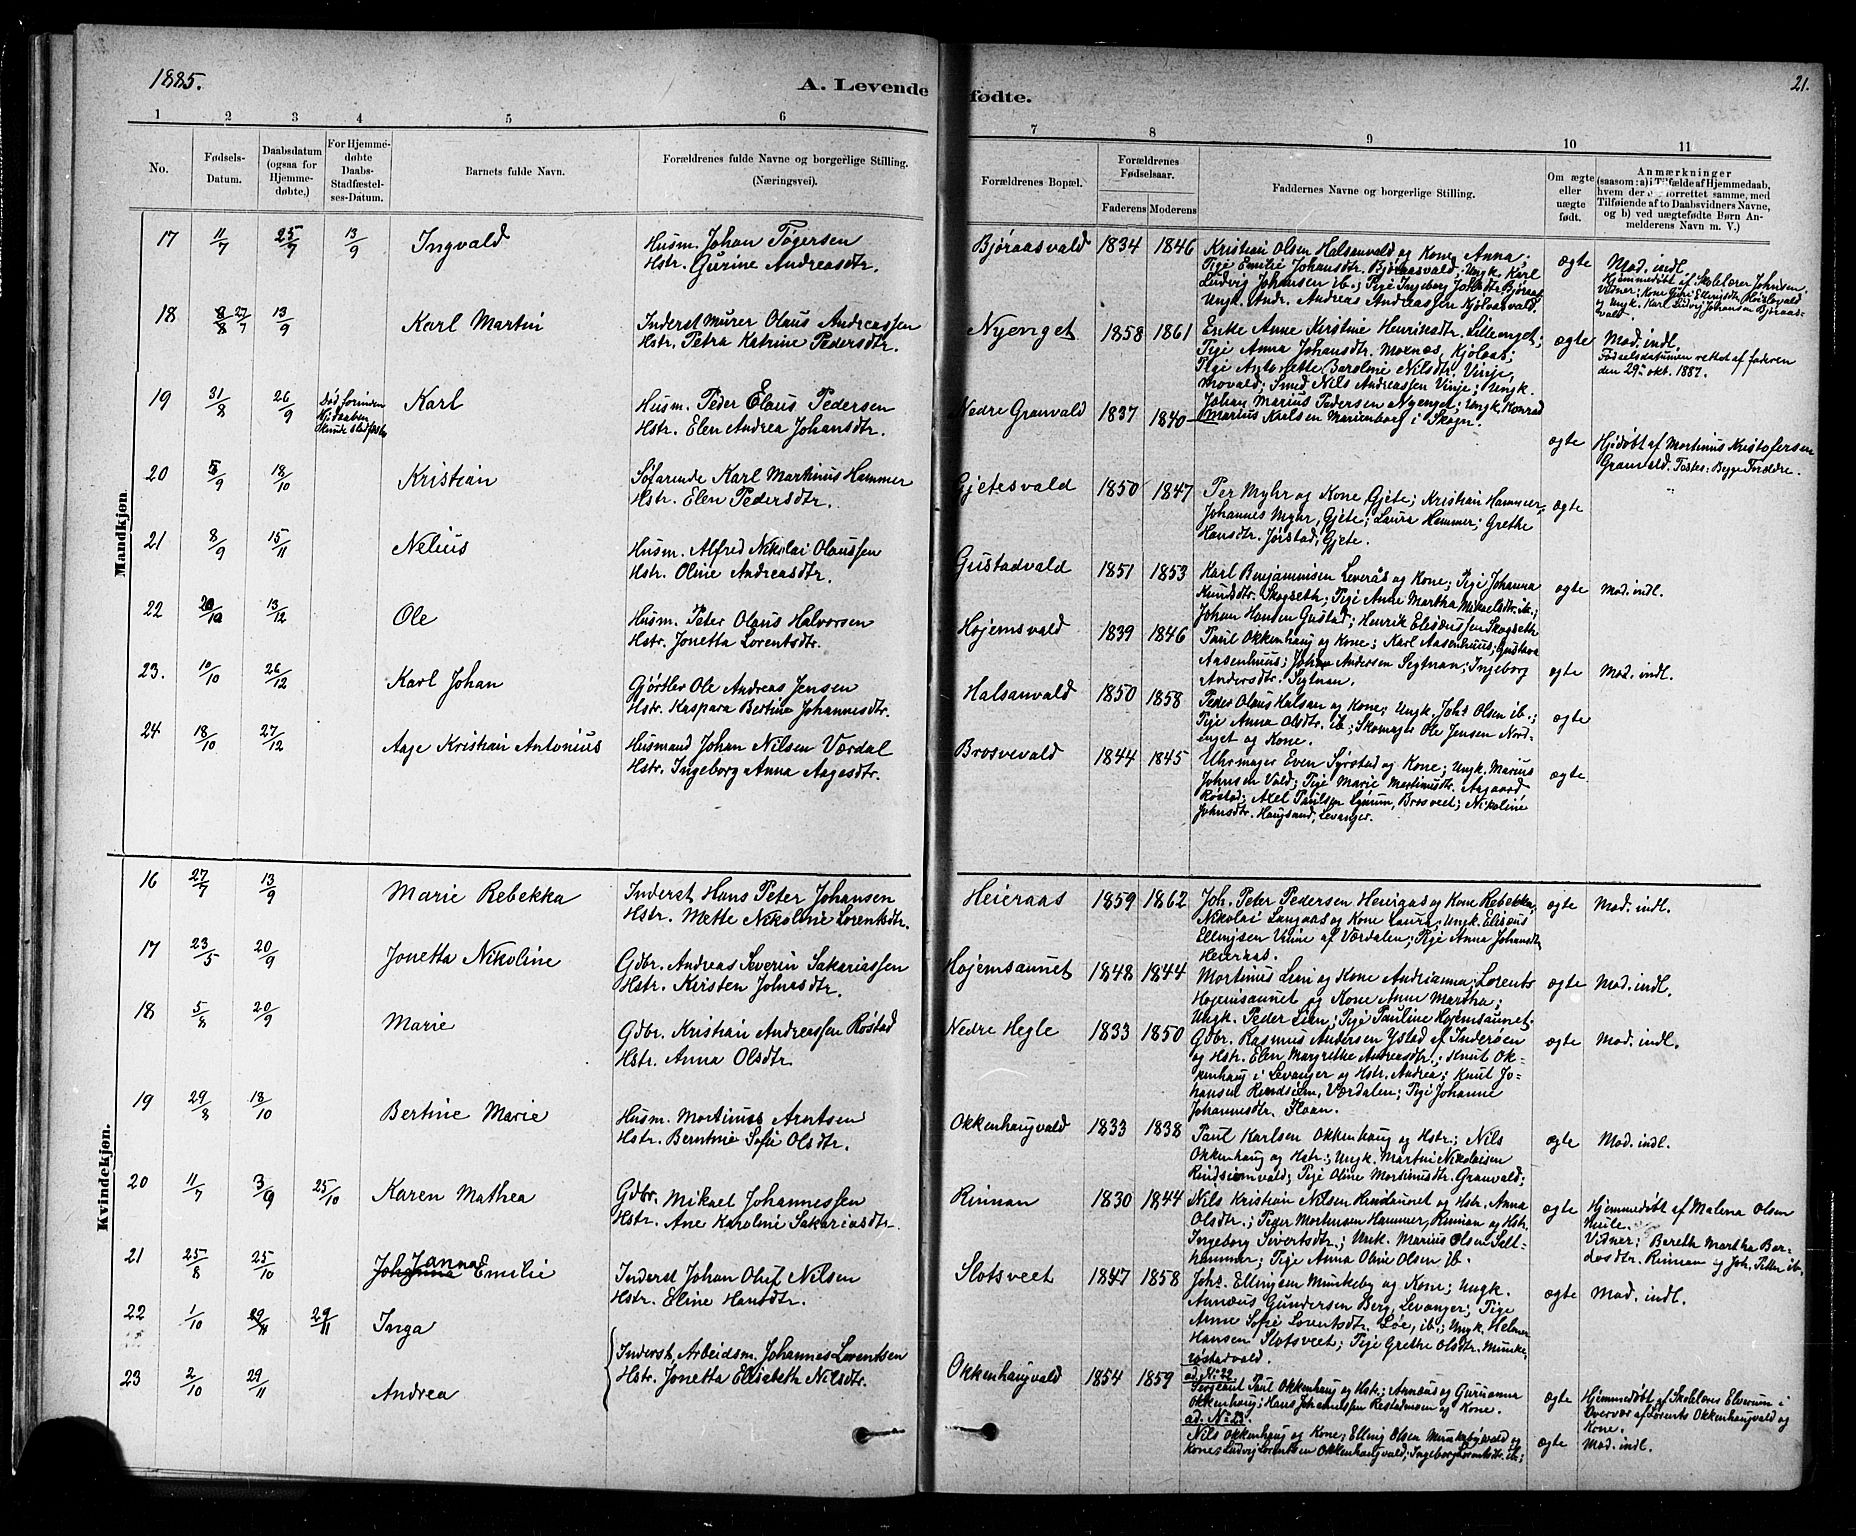 1885.
A. Levende
fødte.
21.
1 2 3 4 5 6 7 8 9 10 11
No.
Fødsels-
Datum.
Daabsdatum
(ogsaa for
Hjemme-
døbte.)
For Hjemme-
døbte
Daabs-
Stadfæstel-
ses-Datum.
Barnets fulde Navn.
Forældrenes fulde Navne og borgerlige Stilling.
(Næringsvei).
Forældrenes Bopæl.
Forældrenes
Fødselsaar.
Faderens Moderens
Faddernes Navne og borgerlige Stilling.
Om ægte
eller
uægte
født.
Anmærkninger
(saasom: a) i Tilfælde af Hjemmedaab,
hvem der har forrettet samme, med
Tilføiende af to Daabsvidners Navne,
og b) ved uægtefødte Børn An-
melderens Navn m. V.)
Mandkjøn.
17 11/7 25/7 13/9 Ingvald
Husm. Johan Togersen
Hstr. Gurine Andreasdtr.
Bjøraasvald 1834 1846
Kristian Olsen Halsanvald og Kone Anna;
Pige Emilie Johansdtr. Bjøraasvald; Ungk. Karl
Ludvig Johansen ib.; Pige Ingeborg Johsdtr. Bjøraas
Ungk. Andr. Andreas Andreassen Kjølaasvald.
ægte
Mod. indl.
Hjemmedøbt af Skolelærer Johnsen.
Vidner: Kone Guri Ellingsdtr.
og Ungk. Karl Ludvig Johansen Bjøraas-
vald.
18 8/8 27/7 13/9 Karl Martin
Inderst Murer Olaus Andreassen
Hstr. Petra Katrine Pedersdtr.
Nyenget 1858 1861
Enke Anne Kirstine Henriksdtr. Lilleenget;
Pige Anna Johansdtr. Moxnæs, Kjølaas;
Pige Antonette Baroline Nilsdtr. Vinje,
Movald; Smed Nils Andreassen Vinje; Ungk.
Johan Marius Pedersen Nyenget; Ungk. Konrad
Marius Karlsen Marienborg i Skogn.
ægte
Mod. indl.
Fødselsdatumen rettet af faderen
den 29de okt. 1887.
19 31/8 26/9 Død forinden
Hj.daaben
kunde stadfæstes
Karl
Husm. Peder Elaus Pedersen
Hstr. Elen Andrea Johansdtr.
Nedre Granvald 1837 1840
ægte
Hjdøbt af Mortinus Kristofersen
Granvald. Testes: Begge Forældre.
20 5/9 18/10 Kristian
Søfarende Karl Martinus Hammer
Hstr. Elen Pedersdtr.
Gjetesvald 1850 1847
Per Myhr og Kone Gjete; Kristian Hammer,
Johannes Myhr, Gjete; Laura Hammer; Grethe
Hansdtr. Jørstad, Gjete.
ægte
21 8/9 15/11 Nelius
Husm. Alfred Nikolai Olaussen
Hstr. Oline Andreasdtr.
Gustadvald 1851 1853
Karl Benjaminsen Leverås og Kone; Pige Johanna
Knudsdtr. Skogseth; Pige Anne Martha Mikaelsdtr. ib.;
Johan Hansen Gustad; Henrik Elisæussen Skogseth
ægte Mod. indl.
22 20/10 13/12 Ole
Husm. Peter Olaus Halvorsen
Hstr. Jonetta Lorentsdtr.
Højemsvald 1839 1846
Paul Okkenhaug og Kone; Karl Aasenhuus; Gustava
Aasenhuus; Johan Andersen Segtnan; Ingeborg
Andersdtr. Segtnan.
ægte Mod. indl.
23. 10/10 26/12 Karl Johan
Gjørtler Ole Andreas Jensen
Hstr. Kaspara Bertine Johannesdtr.
Halsanvald 1850 1858
Peder Olaus Halsan og Kone; Ungk. Johs. Olsen ib.;
Pige Anna Olsdtr. ib.; Skomager Ole Jensen Nord-
enget og Kone.
ægte
24 18/10 27/12 Aage Kristian Antonius
Husmand Johan Nilsen Værdal
Hstr. Ingeborg Anna Aagesdtr.
Brosvevald 1844 1845
Uhrmager Even Syrstad og Kone; Ungk. Marius
Johnsen Vald; Pige Marie Martinusdtr. Aagaard
Røstad; Axel Paulsen Lynum, Brosveet; Nikoline
Johnsdtr. Haugsand, Levanger.
ægte
Kvindekjøn.
16 27/7 13/9 Marie Rebekka
Inderst Hans Peter Johansen
Hstr. Mette Nikoline Lorentsdtr.
Heieraas 1859 1862
Joh. Peter Pedersen Heieraas og Kone Rebekka,
Nikolai Langaas og Kone Laura; Ungk. Elisæus
Ellingsen Vinne af Værdalen; Pige Anna Johansdtr
Heieraas.
ægte Mod. indl.
17 23/5 20/9 Jonetta Nikoline
Gdbr. Andreas Severin Sakariassen
Hstr. Kirsten Johnsdtr.
Højemsaunet 1848 1844
Mortinus Lien og Kone Andrianna; Lorents
Højemsaunet og Kone Anne Martha;
Ungk. Peder Lien; Pige Pauline Højemsaunet.
ægte Mod. indl.
18 5/8 20/9 Marie
Gdbr. Kristian Andreassen Røstad
Hstr. Anna Olsdtr.
Nedre Hegle 1833 1850
Gdbr. Rasmus Andersen Ystad af Inderøen
og Hstr. Elen Margrethe Andreasdtr.; Knut Ok-
kenhaug i Levanger og Hstr. Andrea; Knut Jo-
hansen Rindsem, Værdalen; Pige Johanne
Johannesdtr. Floan.
ægte Mod. indl.
19 29/8 18/10 Bertine Marie
Husm. Mortinus Arntsen
Hstr. Berntine Sofie Olsdtr.
Okkenhaugvald 1833 1838
Paul Karlsen Okkenhaug og Hstr.; Nils
Okkenhaug og Hstr.; Ungk. Martin Nikolaisen
Rindsemvald; Pige Oline Mortinusdtr. Granvald;
ægte Mod. indl.
20 11/7 3/9 25/10 Karen Mathea
Gdbr. Mikael Johannessen
Hstr. Ane Karoline Sakariasdtr.
Rinnan 1830 1844
Nils Kristian Nilsen Rinsaunet og Hstr. Anna
Olsdtr.; Peder Mortensen Hammer, Rinnan og Hstr.
Ingeborg Sivertsdtr.; Ungk. Marius Olsen Salt-
hammer; Pige Anna Oline Olsen ib.
ægte
Hjemmedøbt af Malena Olsen
Vidner: Bereth Martha Bar-
dosdtr. Rinnan og Joh. Petter ib.
21 25/8 25/10 Johanna Janna Emilie
Inderst Johan Oluf Nilsen
Hstr. Eline Hansdtr.
Slotsveet 1847 1858
Johs. Ellingsen Munkeby og Kone; Ungk.
Arnæus Gundersen Berg, Levanger; Pige
Anne Sofie Lorentsdtr. Løe, ib.; Ungk. Helmer
Hansen Slotsveet; Pige Grethe Olsdtr. Munke-
røstadvald.
ægte Mod. indl.
22 1/10 29/11 29/11 Inga
23 2/10 29/11 Andrea
Inderst, Arbeidsm. Johannes Lorentsen
Hstr. Jonetta Elisabeth Nilsdtr.
Okkenhaugvald 1854 1859
ad. No 22
Sergeant Paul Okkenhaug og Hstr.; Arnæus og Gurianna
Okkenhaug; Hans Johannessen Restadmoen og Kone.
ad. No 23.
Nils Okkenhaug og Kone; Elling Olsen Munkebyvald og
Kone; Ludvig Lorentsen Okkenhaugvald; Ingeborg Lorentsdtr. ib.;
ægte
Hjemmedøbt af Skolelærer Elverum i
Overvær af Lorents Okkenhaugvald og
Kone.
ægte Mod. indl.